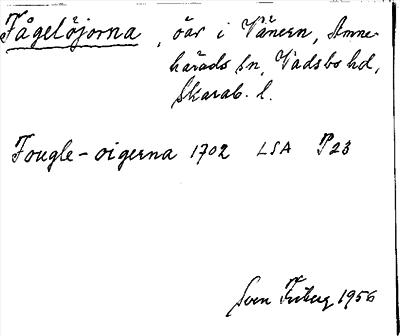 Fågelöjorna, öar i Vänern, Amne-
härads sn, Vadsbo hd,
Skarab. l.
Fougle-oigerna 1702 LSA P23
Sven Friberg 1956